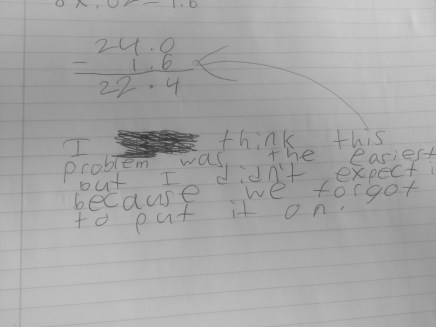 24.0
- 1.6
22.4
I think this
problem was the easiest
but I didn't expect
because we forgot
to put it on.